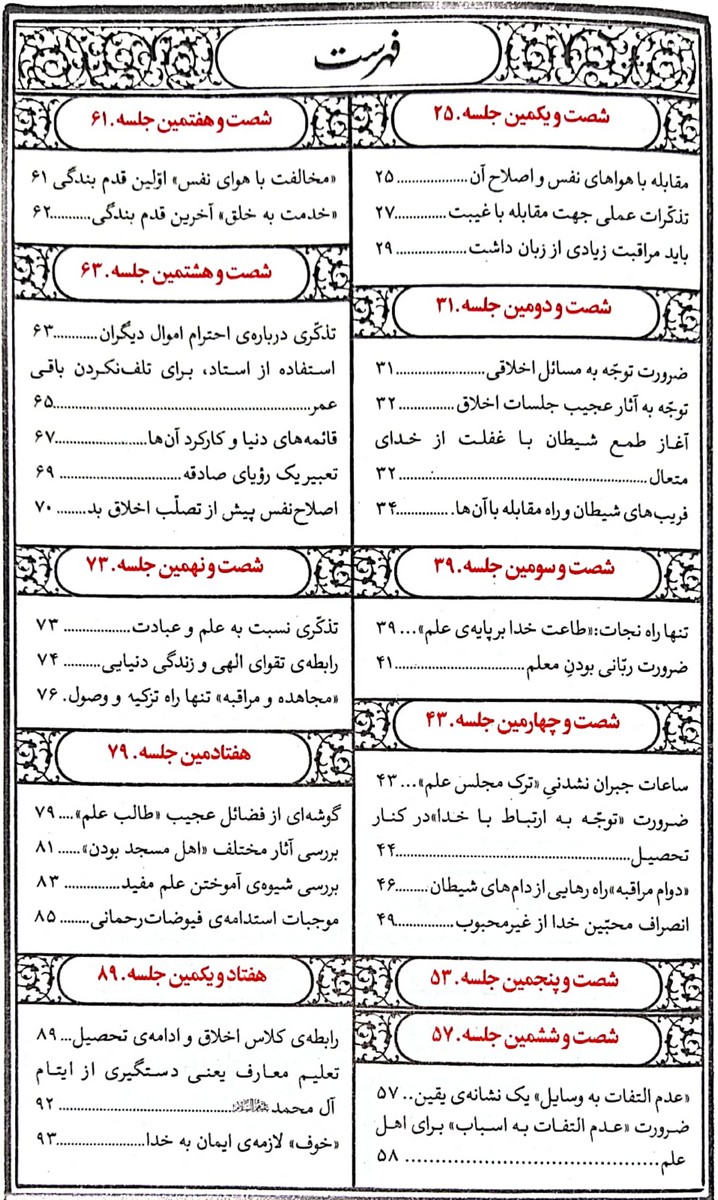 فهرست
شصت و یکمین جلسه. ۲۵
مقابله با هواهای نفس و اصلاح آن .................. ۲۵
تذکّرات عملی جهت مقابله با غیبت .................. ۲۷
باید مراقبت زیادی از زبان داشت .................. ۲۹
شصت و دومین جلسه. ۳۱
ضرورت توجّه به مسائل اخلاقی .................. ۳۱
توجّه به آثار عجیب جلسات اخلاق .................. ۳۲
آغاز طمع شیطان با غفلت از خدای
متعال .................. ۳۲
فریب‌های شیطان و راه مقابله با آن‌ها. .................. ۳۴
شصت و سومین جلسه. ۳۹
تنها راه نجات: «طاعت خدا بر پایه‌ی علم» ... ۳۹
ضرورت ربّانی بودنِ معلم .................. ۴۱
شصت و چهارمین جلسه. ۴۳
ساعات جبران نشدنیِ «ترک مجلس علم» ... ۴۳
ضرورت «توجّه به ارتباط با خدا» در کنار
تحصیل .................. ۴۴
«دوام مراقبه» راه رهایی از دام‌های شیطان ........ ۴۶
انصراف محبّین خدا از غیرمحبوب .................. ۴۹
شصت و پنجمین جلسه. ۵۳
شصت و ششمین جلسه. ۵۷
«عدم التفات به وسایل» یک نشانه‌ی یقین .. ۵۷
ضرورت «عدم التفات به اسباب» برای اهل
علم .................. ۵۸
شصت و هفتمین جلسه. ۶۱
«مخالفت با هوای نفس» اوّلین قدم بندگی ۶۱
«خدمت به خلق» آخرین قدم بندگی .......... ۶۲
شصت و هشتمین جلسه. ۶۳
تذکّری درباره‌ی احترام اموال دیگران ........... ۶۳
استفاده از استاد، برای تلف‌نکردن باقی
عمر .................. ۶۵
قائمه‌های دنیا و کارکرد آن‌ها .................. ۶۷
تعبیر یک رؤیای صادقه .................. ۶۹
اصلاح‌نفس پیش از تصلّب اخلاق بد ........ ۷۰
شصت و نهمین جلسه. ۷۳
تذکّری نسبت به علم و عبادت .................. ۷۳
رابطه‌ی تقوای الهی و زندگی دنیایی .......... ۷۴
«مجاهده و مراقبه» تنها راه تزکیه و وصول. ۷۶
هفتادمین جلسه. ۷۹
گوشه‌ای از فضائل عجیب «طالب علم» .... ۷۹
بررسی آثار مختلف «اهل مسجد بودن» ..... ۸۱
بررسی شیوه‌ی آموختن علم مفید .............. ۸۳
موجبات استدامه‌ی فیوضات رحمانی ........ ۸۵
هفتاد و یکمین جلسه. ۸۹
رابطه‌ی کلاس اخلاق و ادامه‌ی تحصیل ... ۸۹
تعلیم معارف یعنی دستگیری از ایتام
آل محمد .................. ۹۲
«خوف» لازمه‌ی ایمان به خدا .................. ۹۳